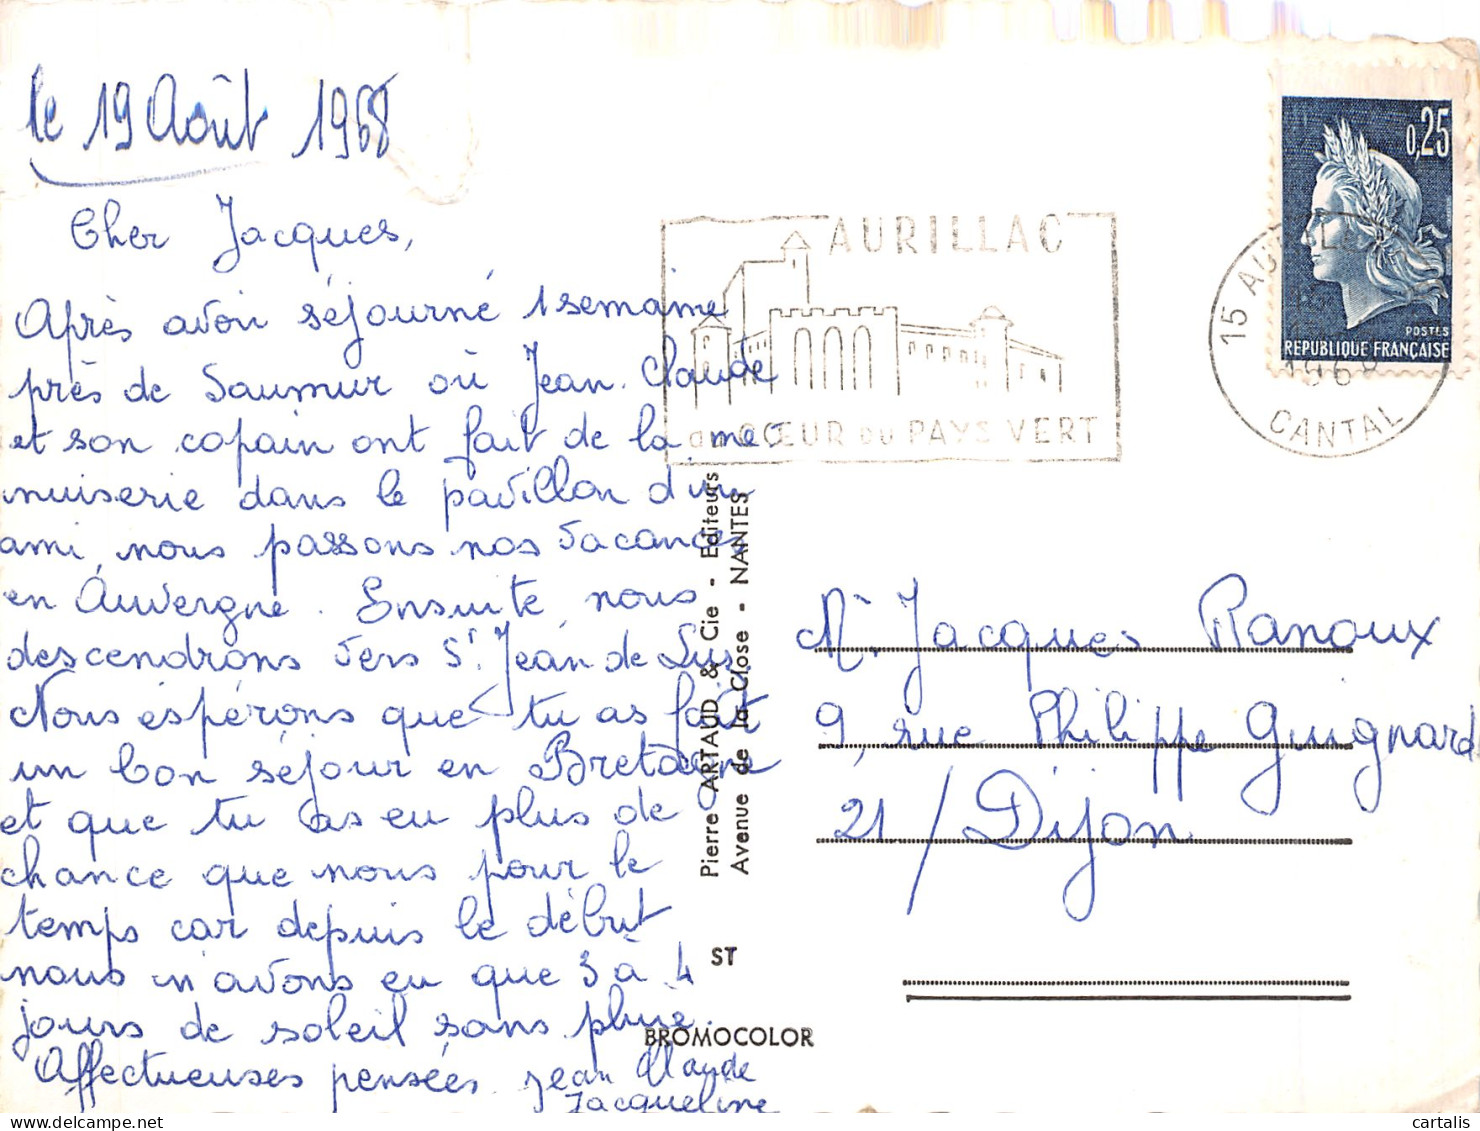 le 19 Août 1968
Cher Jacques,
Après avoir séjourné 1 semaine
près de Saumur où Jean-Claude
et son copain ont fait de la me-
nuiserie dans le pavillon d'un
ami, nous passons nos vacances
en Auvergne. Ensuite nous
descendrons vers St Jean de Luz.
Nous espérons que tu as fait
un bon séjour en Bretagne
et que tu as eu plus de
chance que nous pour le
temps car depuis le début
nous n'avons eu que 3 à 4
jours de soleil sans pluie.
Affectueuses pensées. Jean Claude
Jacqueline
Pierre ARTAUD & Cie - Editeurs
Avenue de la Close - NANTES
ST
BROMOCOLOR
AURILLAC
au CŒUR DU PAYS VERT
0,25
POSTES
RÉPUBLIQUE FRANÇAISE
15 AURILLAC
1968
CANTAL
Mr. Jacques Ranoux
9, rue Philippe Guignard
21/ Dijon
cartalis